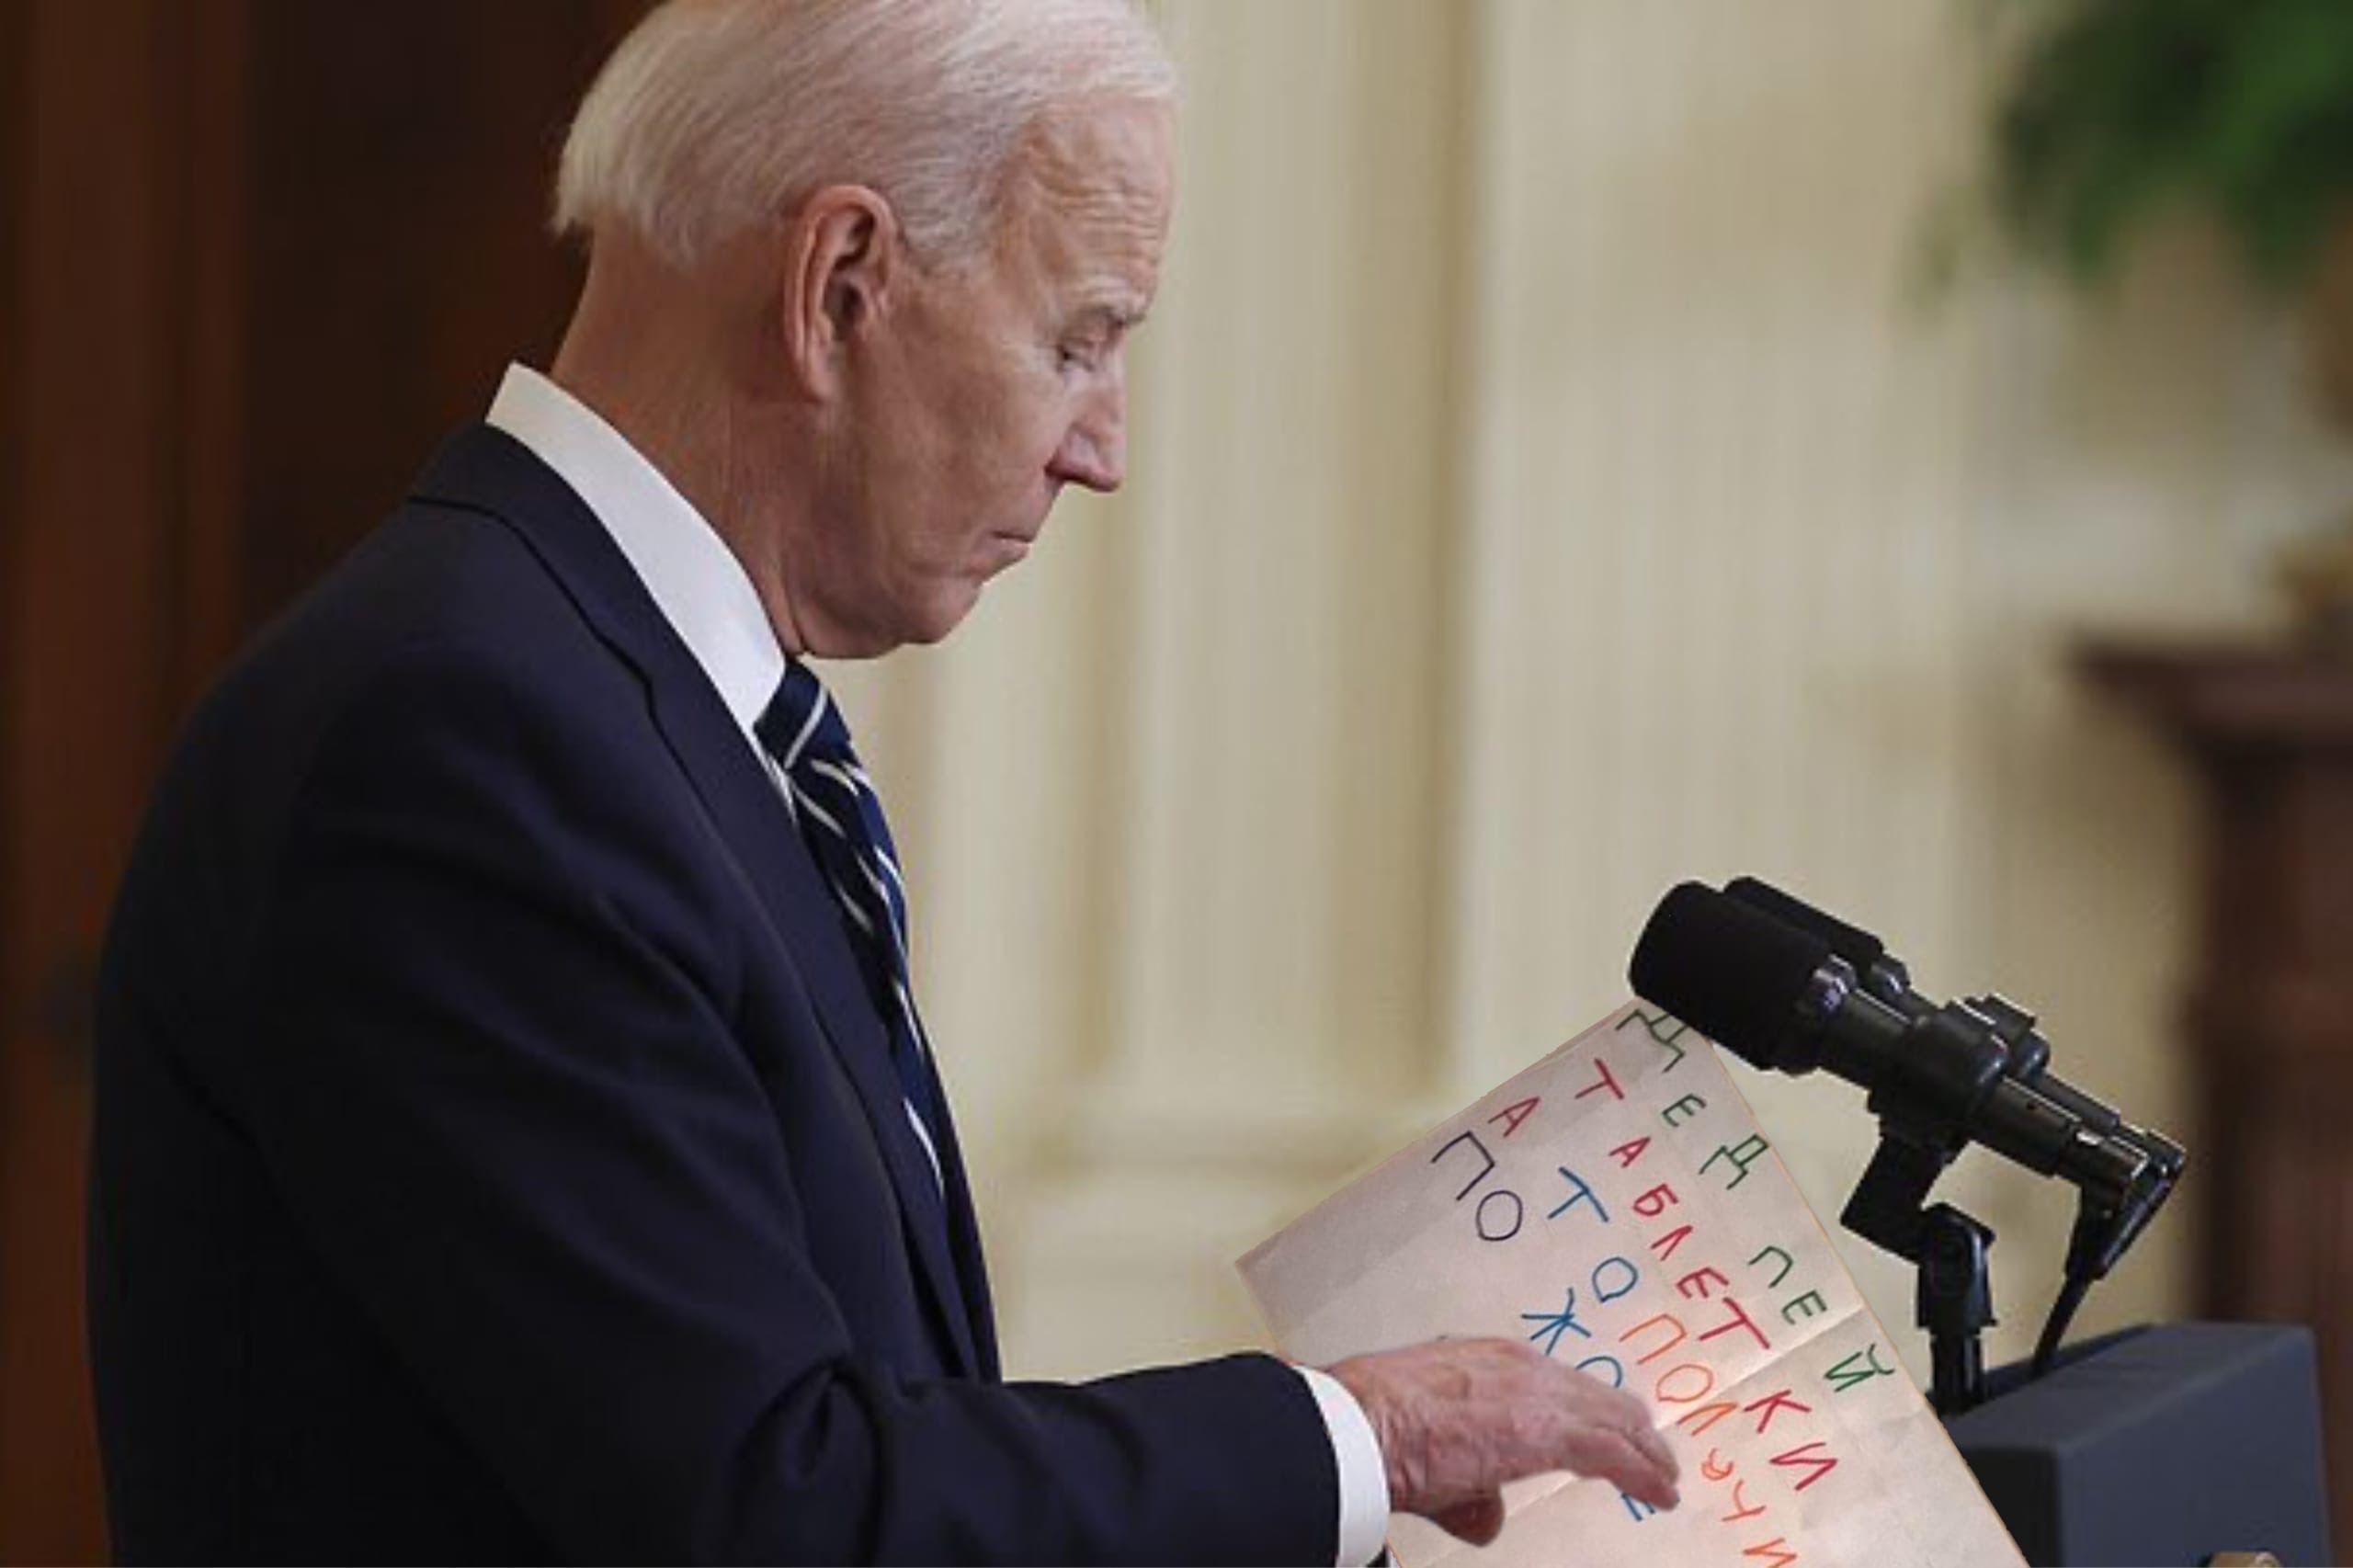 ДЕД ПЕЙ
ТАБЛЕТКИ
А ТО ПОЛУЧИ
ПО ЖО Е